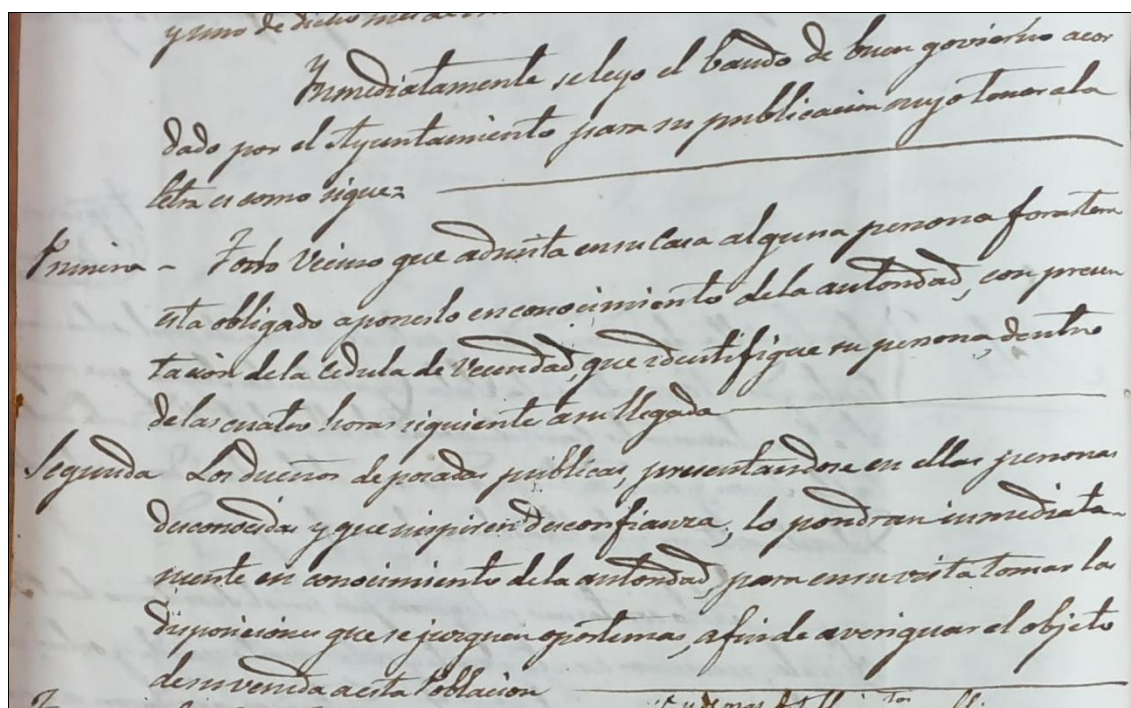 y uno de dicho mes de
Inmediatamente se leyo el bando de buen govierno acor
dado por el Ayuntamiento para su publicacion cuyo tenor a la
letra es como sigue=
Primera - Todo Vecino que admita en su Casa alguna persona forastera
esta obligado a ponerlo en conocimiento de la autoridad, con presen
tacion de la Cedula de Vecindad, que identifique su persona, dentro
de las cuatro horas siguientes a su llegada
Segunda Los dueños de posadas publicas, presentandose en ellas personas
desconocidas y que inspiren desconfianza, lo pondran inmediata-
mente en conocimiento de la autoridad, para en su vista tomar las
disposiciones que se juzguen oportunas, a fin de averiguar el objeto
de su venida a esta Poblacion